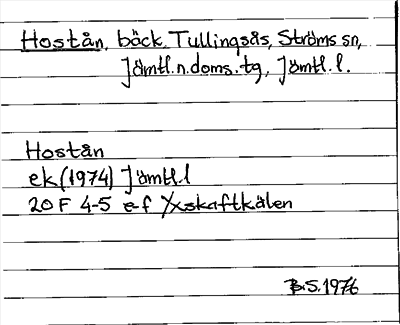 Hostån, bäck, Tullingsås, Ströms sn,
Jämtl.n.doms.tg, Jämtl.l.
Hostån
ek (1974) Jämtl.l
20 F 4-5 e-f Yxskaftkälen
B.S. 1976